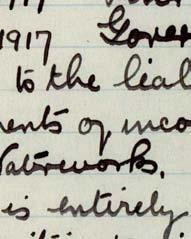 1917 Gover
to the liab
ments of, inco
Waterworks.
is entirely